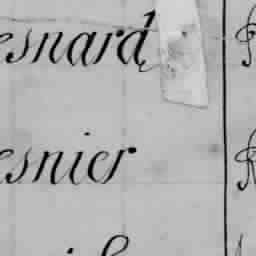 esnard
esnier